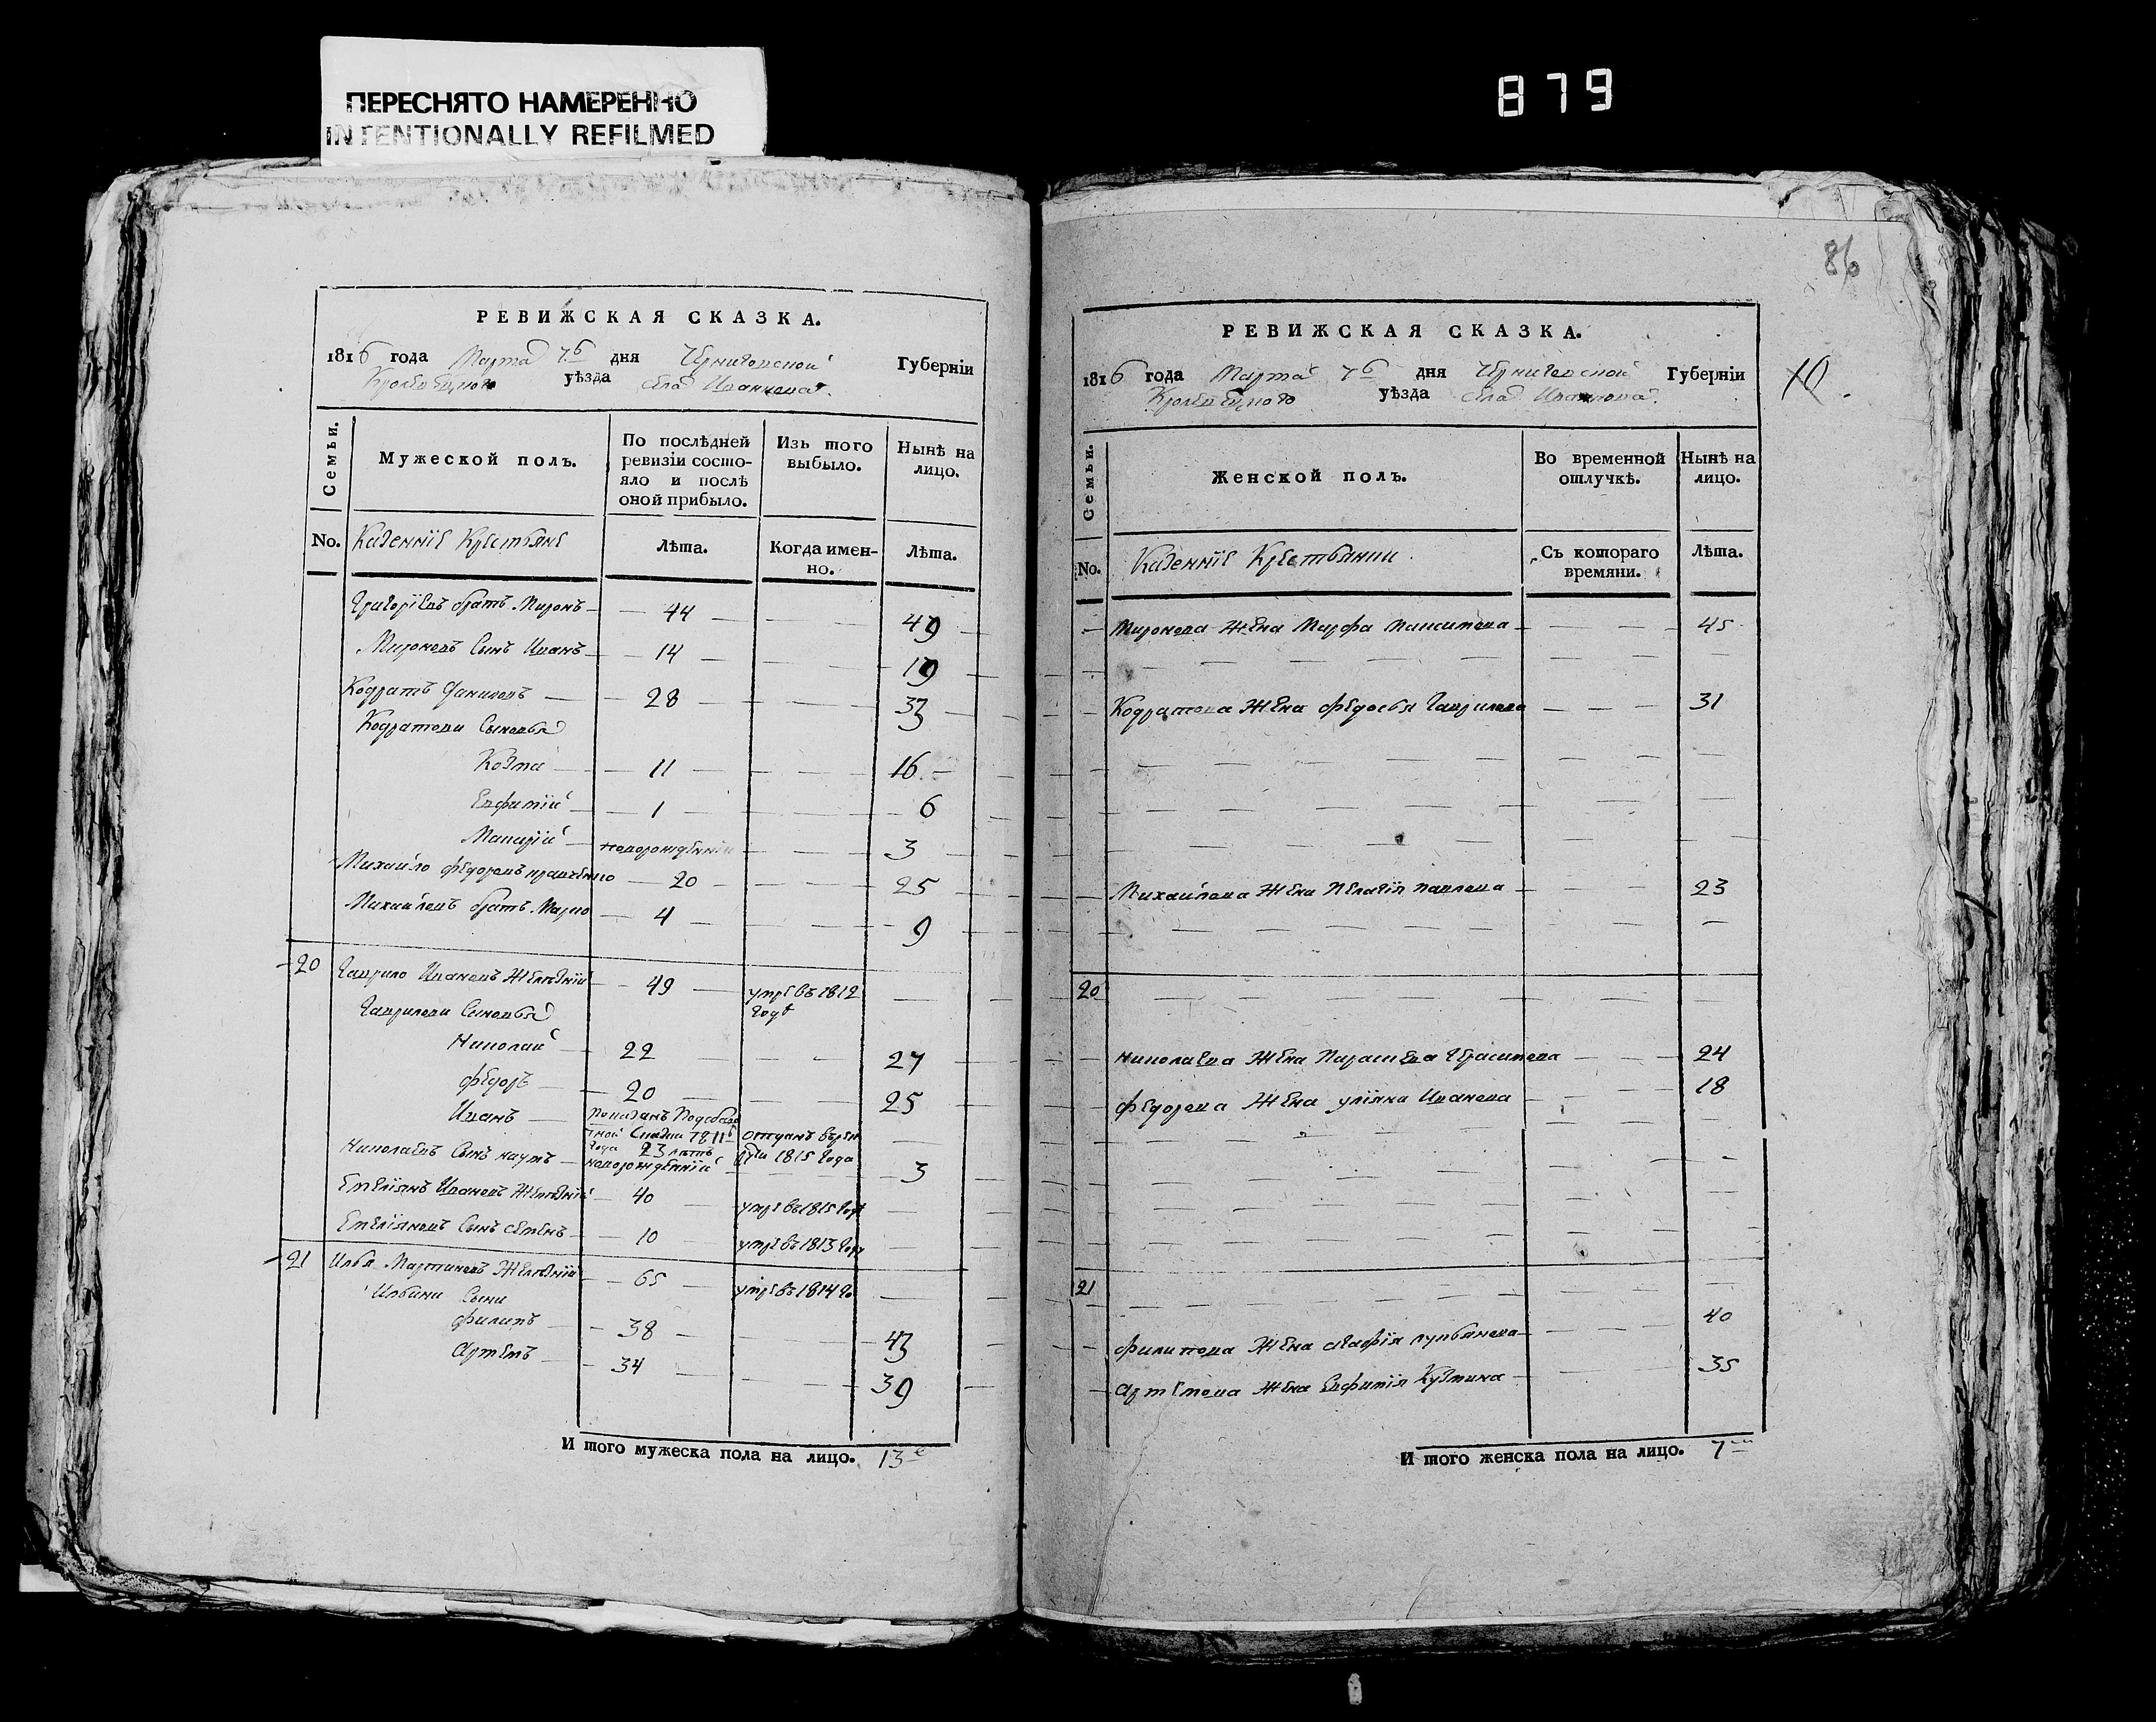 ПЕРЕСНЯТО НАМЕРЕННО
INTENTIONALLY REFILMED
879
РЕВИЖСКАЯ СКАЗКА.
1816 года Марта 7го дня Черниговской Губерніи
Кролевецкого уѣзда села Иванкова.
Семьи.
Мужеской полъ.
По послѣдней ревизіи состояло и послѣ оной прибыло.
Изъ того выбыло.
Нынѣ на лицо.
No. Казенніе Крестьяне
Лѣта.
Когда именно.
Лѣта.
Григоріевъ братъ Миронъ 44 49
Мироновъ Сынъ Иванъ 14 19
Кодратъ 28 33
Кодратови Сыновья
Козма 11 16
Евфимій 1 6
Макарій новорожденній 3
Михайло Федоровъ 20 25
Михайловъ братъ Марко 4 9
20 Гаврило Ивановъ Желѣзній 49 умре въ 1812 годѣ
Гаврилови Сыновья
Николай 22 27
Федоръ 20 25
Иванъ показанъ
сказки 1811 года 23 лѣтъ отданъ въ рекруты 1815 года
Николаевъ Сынъ Наумъ новорожденній 3
Емеліянъ Ивановъ Желѣзній 40 умре въ 1815 годѣ
Емеліяновъ Сынъ Семенъ 10 умре въ 1813 году
21 Илья Мартиновъ Желѣзній 65 умре въ 1814 го
Ильини Сыни
Филипъ 38 43
Артемъ 34 39
И того мужеска пола на лицо. 13
86
10.
РЕВИЖСКАЯ СКАЗКА.
1816 года Марта 7го дня Черниговской Губерніи
Кролевецкого уѣзда села Иванкова.
Семьи.
Женской полъ.
Во временной отлучкѣ.
Нынѣ на лицо.
No. Казенніе Крестьянки
Съ котораго времяни.
Лѣта.
Миронова Жена Марфа Максимова 45
Кодратова Жена Федосья Гаврилова 31
Михайлова Жена Пелагія Павлова 23
20
Николаева Жена Параскева Герасимова 24
Федорова Жена Уліяна Иванова 18
21
Филипова Жена Агафія 40
Артемова Жена Евфимія Кузмина 35
И того женска пола на лицо. 7